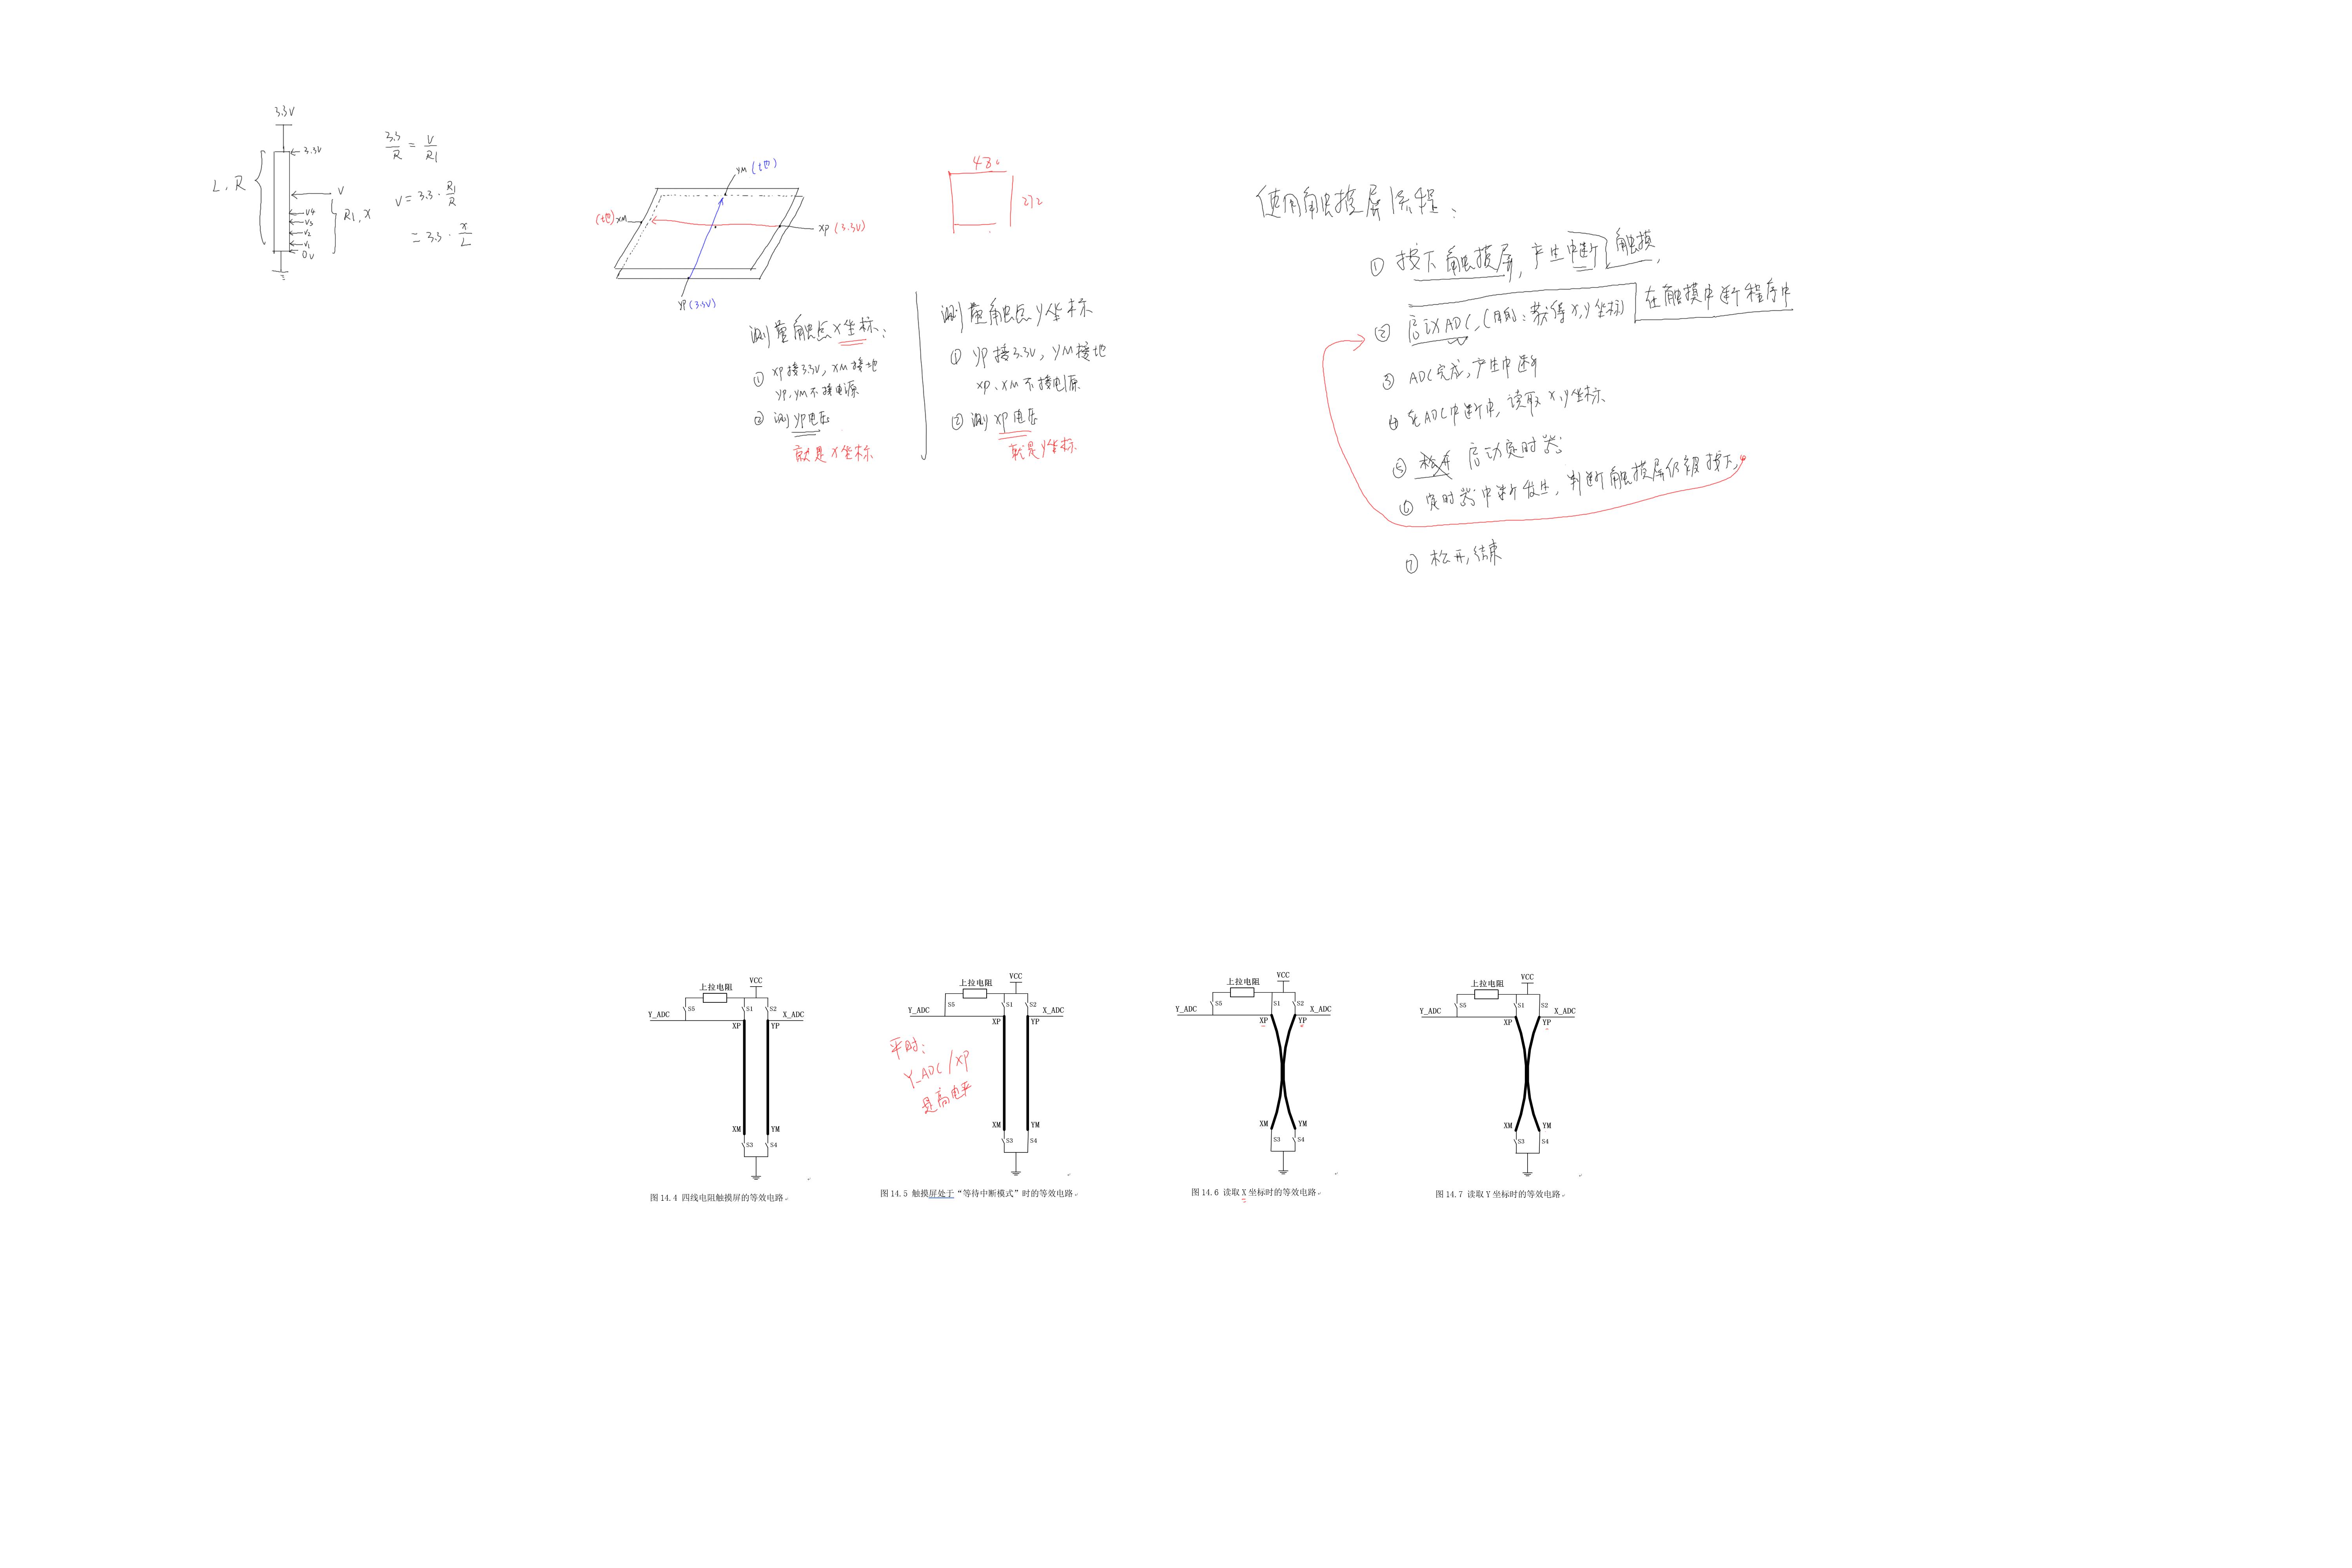 3.3V
3.3V
L, R
V
V4
V3
V2
V1
0V
R1, x
3.3/R = V/R1
V = 3.3 · R1/R
= 3.3 · x/L
YM (地)
(地) XM
XP (3.3V)
YP (3.3V)
480
272
测量触点X坐标:
① XP接3.3V, XM接地
YP, YM不接电源
② 测YP电压
就是X坐标
测量触点Y坐标
① YP接3.3V, YM接地
XP、XM不接电源
② 测XP电压
就是Y坐标
使用触摸屏流程:
① 按下触摸屏, 产生中断 触摸
② 启动ADC, (目的: 获得x,y坐标) 在触摸中断程序中
③ ADC完成, 产生中断
④ 在ADC中断中, 读取x,y坐标
⑤ 松开 启动定时器
⑥ 定时器中断发生, 判断触摸屏仍被按下,
⑦ 松开, 结束
上拉电阻
VCC
S5
S1
S2
Y_ADC
X_ADC
XP
YP
XM
YM
S3
S4
图14.4 四线电阻触摸屏的等效电路
上拉电阻
VCC
S5
S1
S2
Y_ADC
X_ADC
XP
YP
平时:
Y_ADC/XP
是高电平
XM
YM
S3
S4
图14.5 触摸屏处于“等待中断模式”时的等效电路
上拉电阻
VCC
S5
S1
S2
Y_ADC
X_ADC
XP
YP
XM
YM
S3
S4
图14.6 读取X坐标时的等效电路
上拉电阻
VCC
S5
S1
S2
Y_ADC
X_ADC
XP
YP
XM
YM
S3
S4
图14.7 读取Y坐标时的等效电路